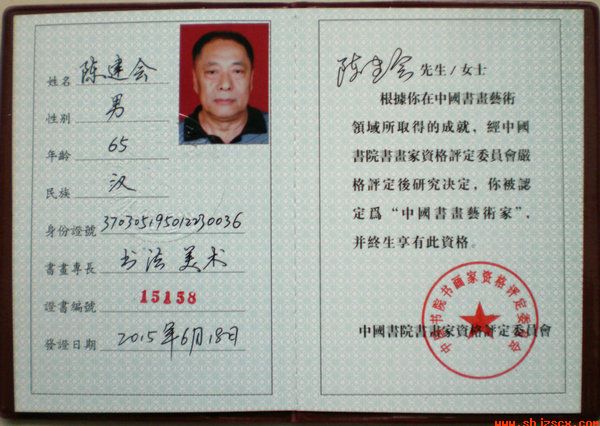 姓名 陈建会
性别 男
年龄 65
民族 汉
身份證號 370305195012230036
書畫專長 书法 美术
證書编號 15158
發證日期 2015年6月18日
陈建会 先生/女士
根據你在中國書畫藝術
領域所取得的成就，經中國
書院書畫家資格評定委員會嚴
格評定後研究決定，你被認
定爲“中國書畫藝術家”，
并終生享有此資格。
中國書院書畫家資格評定委員會
中国书院书画家资格评定委员会
www.sbjzscx.com